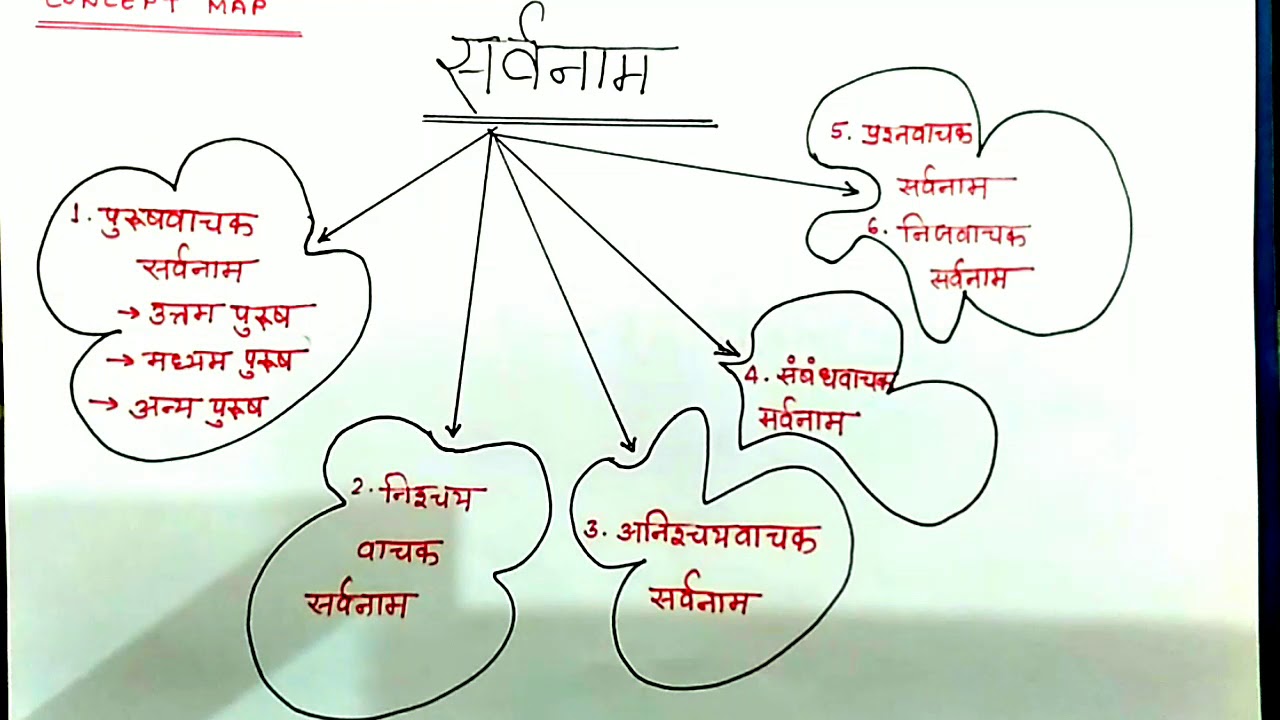 CONCEPT MAP
सर्वनाम
1. पुरूषवाचक
सर्वनाम
→ उत्तम पुरूष
→ मध्यम पुरूष
→ अन्य पुरूष
2. निश्चय
वाचक
सर्वनाम
3. अनिश्चयवाचक
सर्वनाम
4. संबंधवाचक
सर्वनाम
5. प्रश्नवाचक
सर्वनाम
6. निजवाचक
सर्वनाम